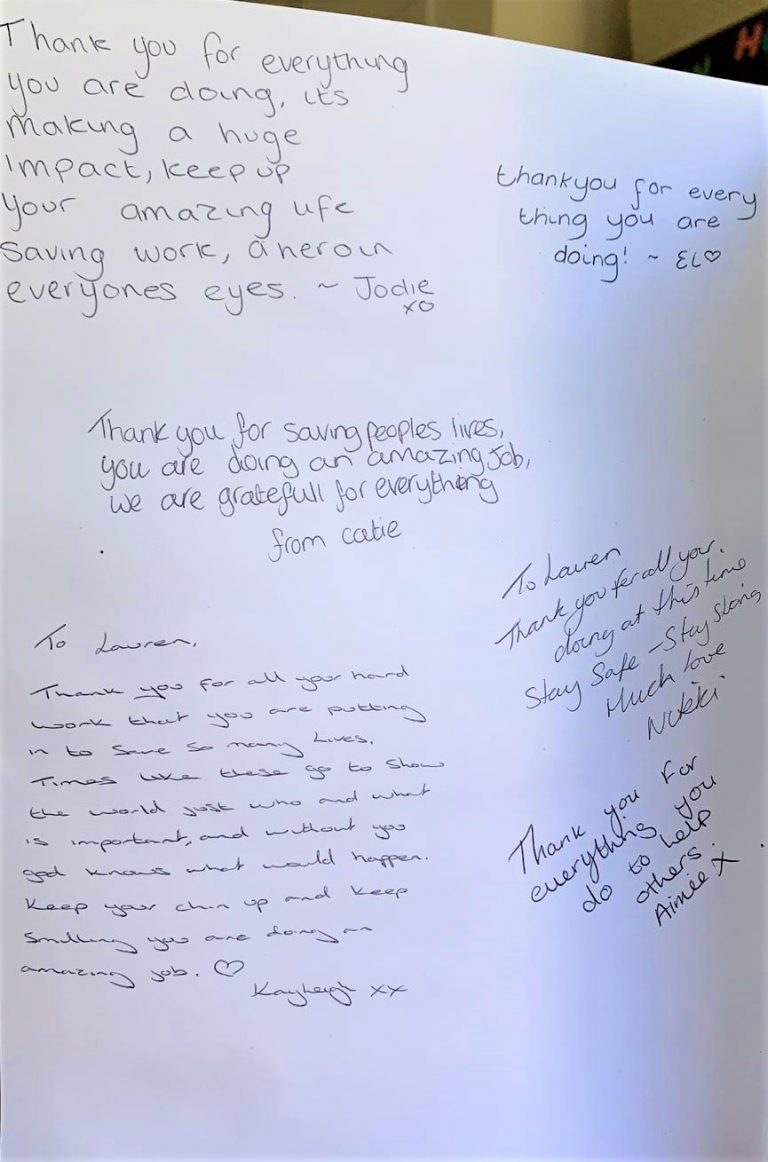 Thank you for everything
you are doing, its
making a huge
impact, keep up
your amazing life
saving work, a hero in
everyones eyes. ~ Jodie
xo
thankyou for every
thing you are
doing! ~ EL♡
Thank you for saving peoples lives,
you are doing an amazing job,
we are gratefull for everything
from catie
To Lauren
Thank you for all your
doing at this time
Stay Safe - Stay Strong
Much love
Nikki
To Lauren,
Thank you for all your hard
work that you are putting
in to save so many lives.
Times like these go to show
the world just who and what
is important, and without you
god knows what would happen.
Keep your chin up and keep
smiling you are doing an
amazing job. ♡
Kayleigh xx
Thank you for
everything you
do to help
others.
Aimée x